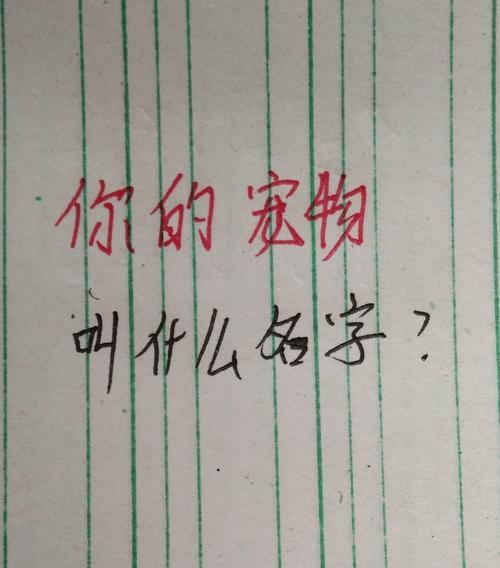 你的宠物
叫什么名字?